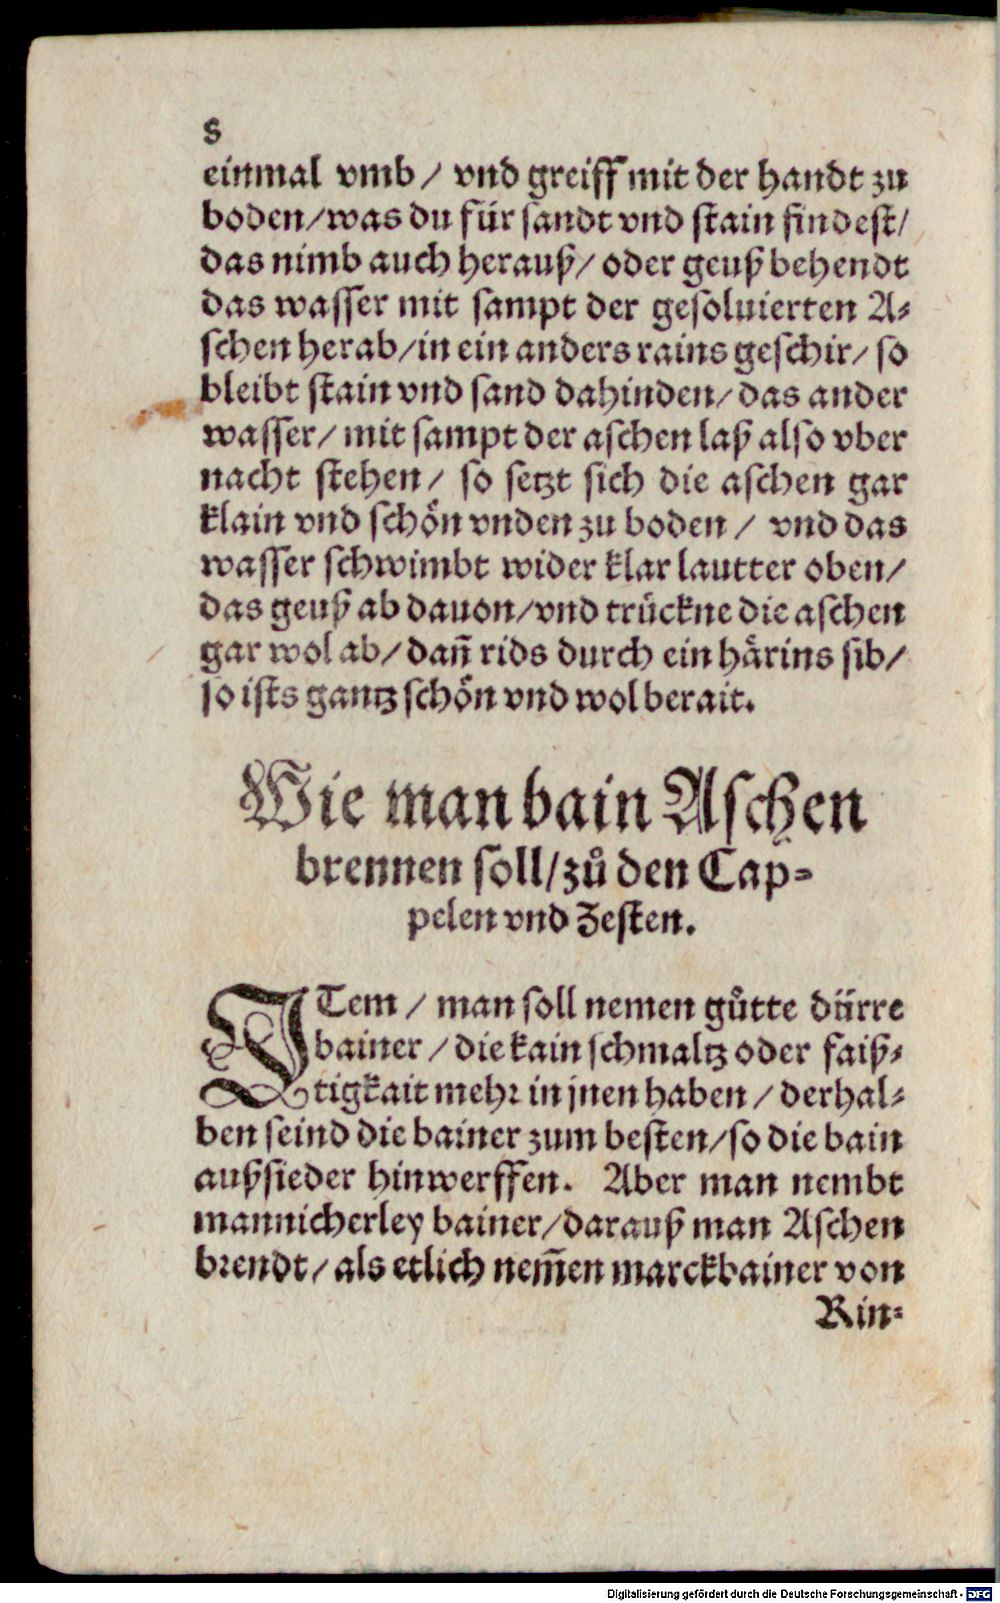 s
einmal vmb / vnd greiff mit der handt zu
boden/was du für sandt vnd stain findest/
das nimb auch herauß/ oder geuß behendt
das wasser mit sampt der gesoluierten A⸗
schen herab/in ein anders rains geschir/ so
bleibt stain vnd sand dahinden/das ander
wasser/ mit sampt der aschen laß also vber
nacht stehen/ so setzt sich die aschen gar
klain vnd schön vnden zu boden / vnd das
wasser schwimbt wider klar lautter oben/
das geuß ab dauon/vnd trückne die aschen
gar wol ab/dañ rids durch ein härins sib/
so ists gantz schön vnd wol berait.
Wie man bain Aschen
brennen soll/zů den Cap⸗
pelen vnd Testen.
ITem / man soll nemen gůtte dürre
bainer / die kain schmaltz oder faiß⸗
tigkait mehr in jnen haben / derhal⸗
ben seind die bainer zum besten/so die bain
außsieder hinwerffen. Aber man nembt
mannicherley bainer/darauß man Aschen
brendt/als etlich nem̃en marckbainer von
Rin⸗
Digitalisierung gefördert durch die Deutsche Forschungsgemeinschaft - DFG